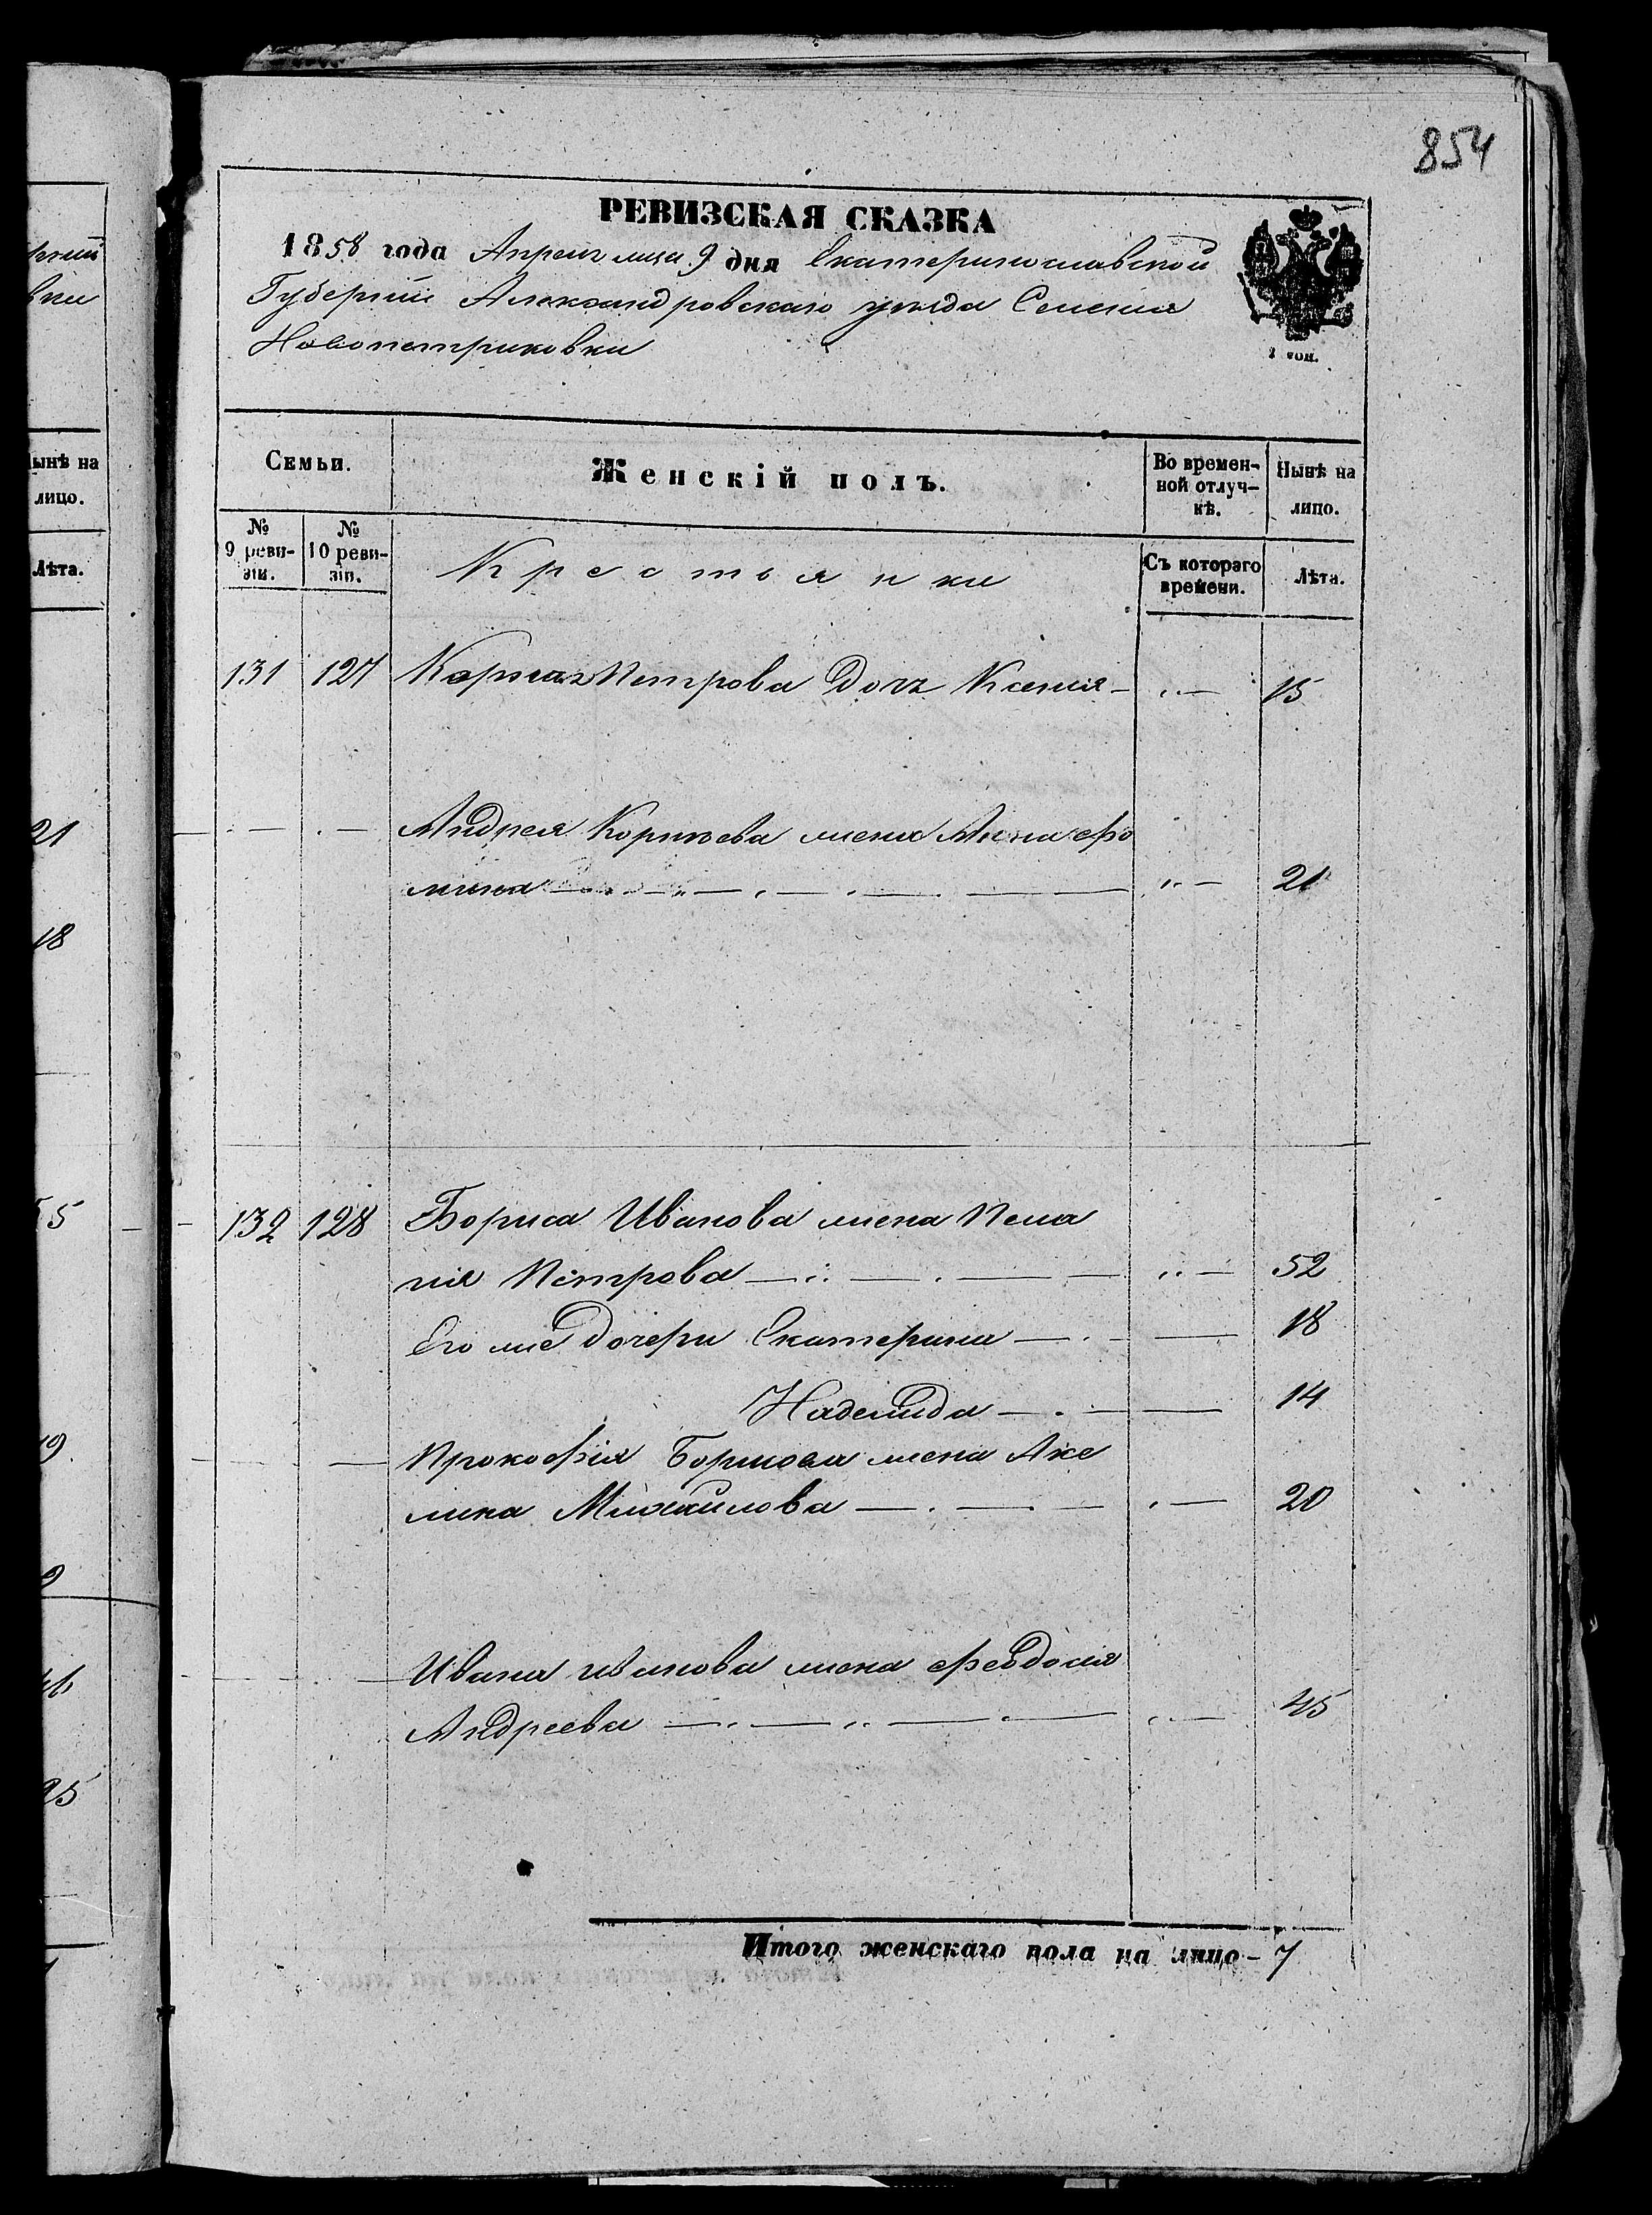 854
РЕВИЗСКАЯ СКАЗКА
1858 года Апреля мца 9 дня Екатеринославской
Губернии Александровскаго уѣзда Селения
Новопетриковки
Семьи.
Женскій полъ.
Во времен-
ной отлуч-
кѣ.
Нынѣ на
лицо.
№
9 реви-
зіи.
№
10 реви-
зіи.
Крестьянки
Съ котораго
времени.
Лѣта.
131 127 Петрова Дочь Ксения 15
Андрея Корнѣева жена Анна Фо
мина 21
132 128 Бориса Иванова жена Пела
гия Петрова 52
Его же дочери Екатерина 18
Надежда 14
Прокофія Борисова жена Аке
лина Михайлова 20
Ивана Иванова жена Феодосия
Андреева 45
Итого женскаго пола на лицо - 7
ынѣ на
лицо.
Лѣта.
21
18
55
25